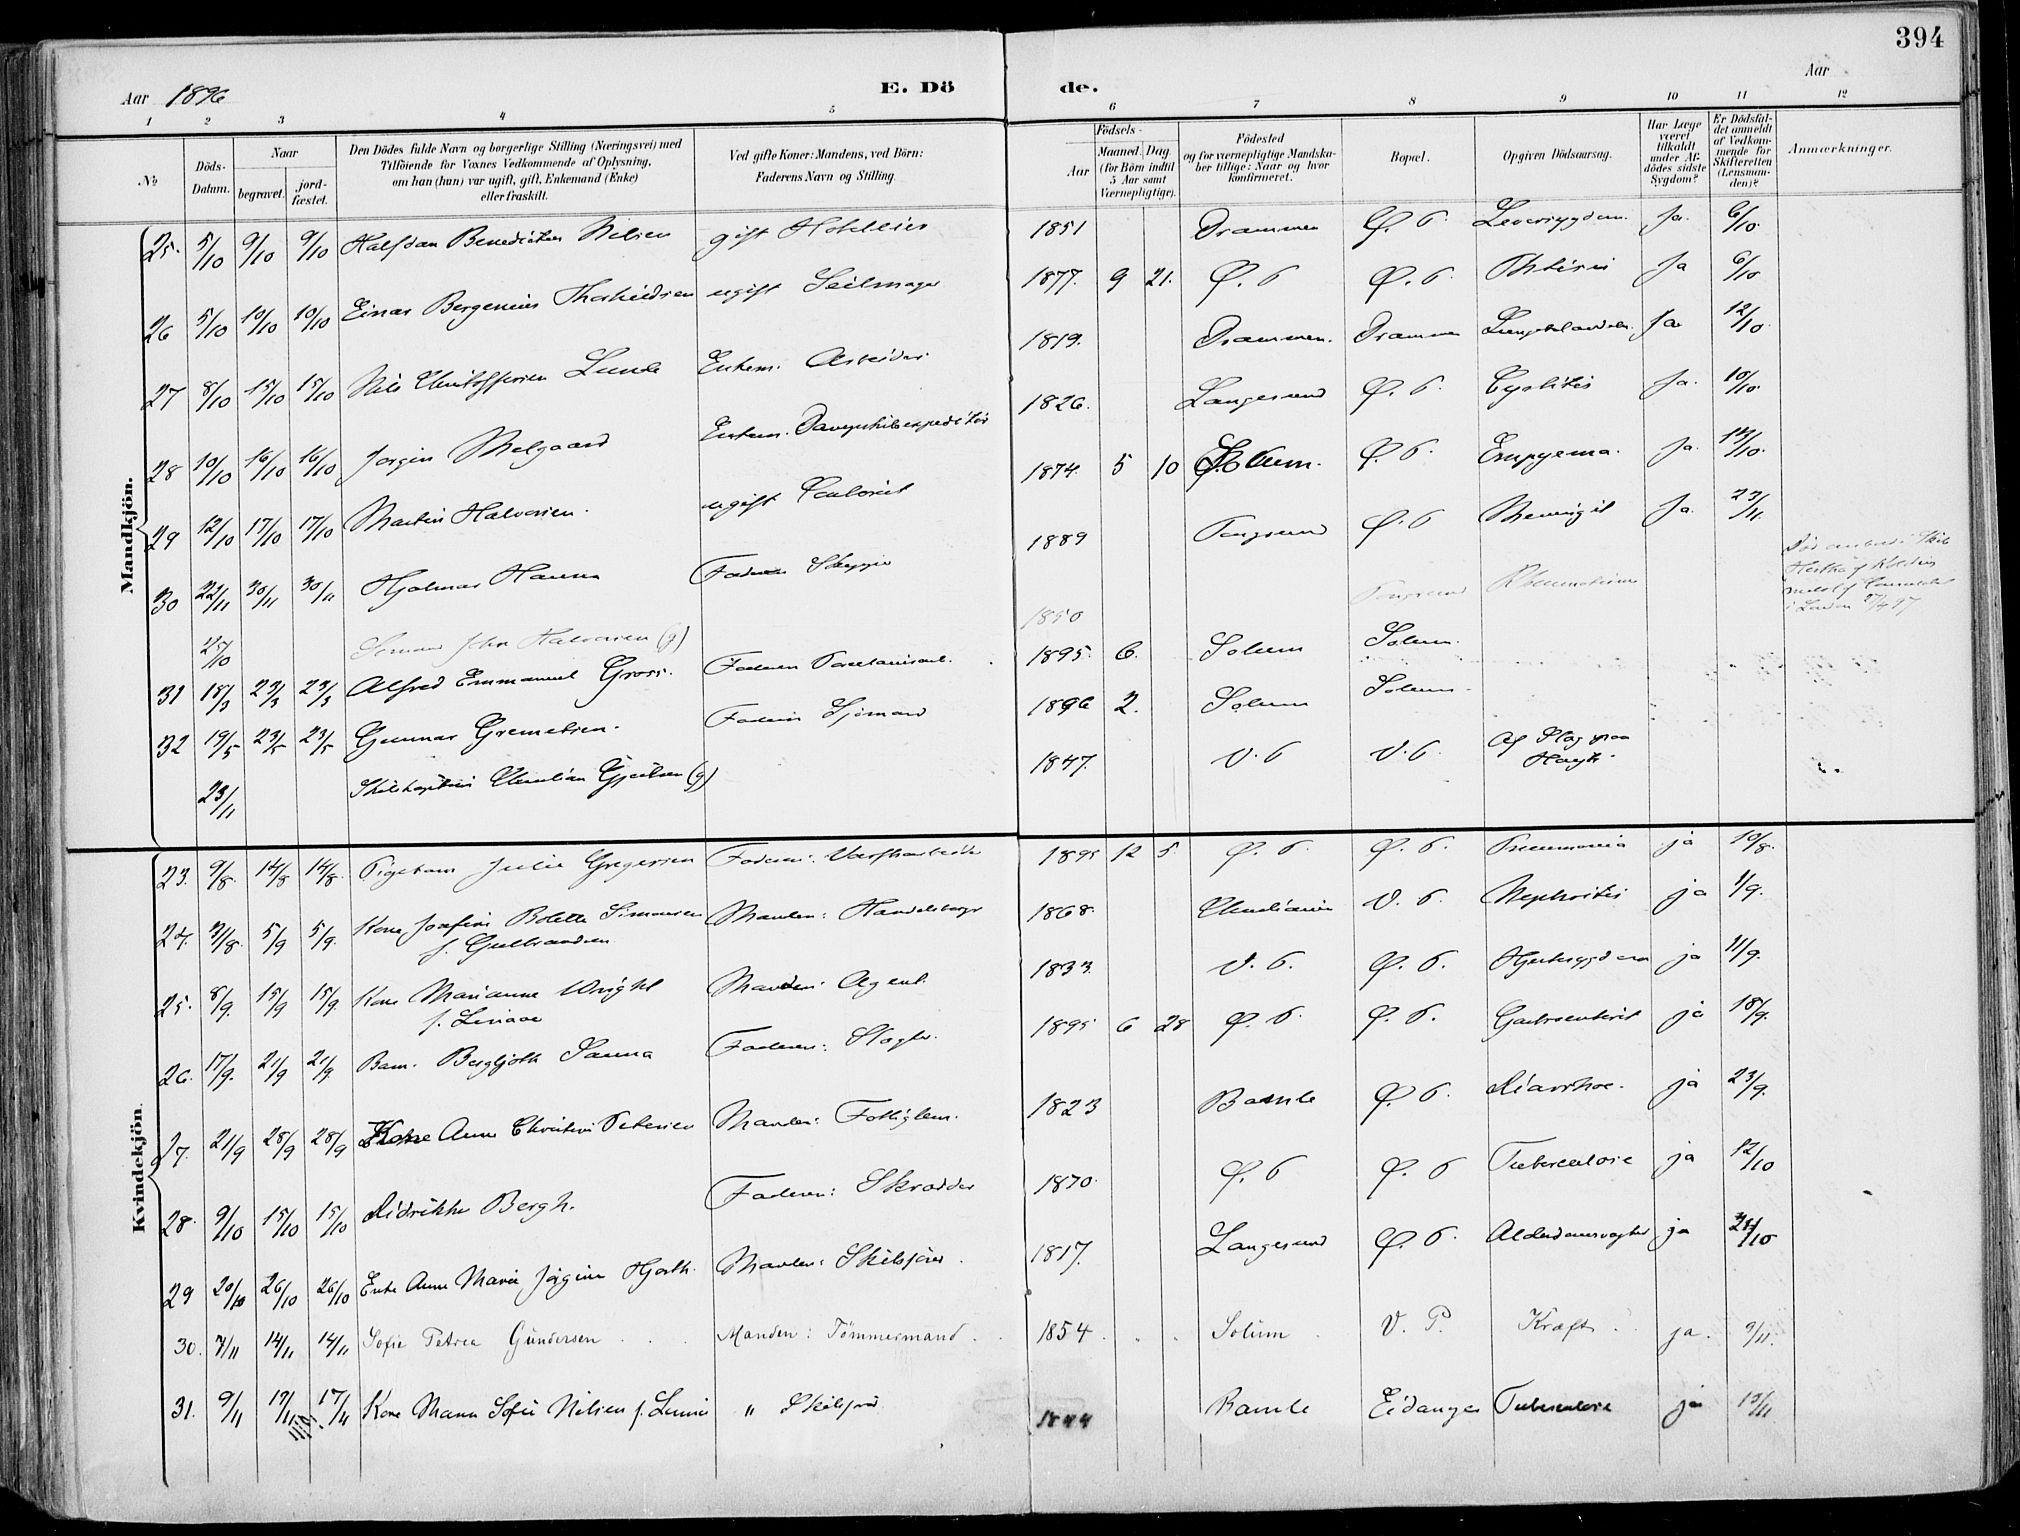 394
Aar 1896
E. Dö de.
Aar
1 2 3 4 5 6 7 8 9 10 11 12
№
Döds-Datum.
Naar
begravet.
jord-fæstet.
Den Dödes fulde Navn og borgerlige Stilling (Næringsvei) med
Tilföiende for Voxnes Vedkommende af Oplysning,
om han (hun) var ugift, gift, Enkemand (Enke)
eller fraskilt.
Ved gifte Koner: Mandens, ved Börn:
Faderens Navn og Stilling
Födsels-
Aar
Maaned. Dag.
(for Börn indtil
5 Aar samt
Værnepligtige).
Födested
og for værnepligtige Mandska-
ber tillige: Naar og hvor
konfirmeret.
Bopæl.
Opgiven Dödsaarsag.
Har Læge
været
tilkaldt
under Af-
dödes sidste
Sygdom?
Er Dödsfal-
det anmeldt
af Vedkom-
mende for
Skifteretten
(Lensman-
den)?
Anmærkninger.
Mandkjön.
25. 5/10 9/10 9/10 Halfdan Benedictus Nilsen gift 1851 Drammen Ø. P. Leversygdom. Ja. 6/10.
26 5/10 10/10 10/10 Einar Bergenius ugift Seilmager 1877. 9 21. Ø. P Ø. P. Phtisis Ja 6/10
27 8/10 15/10 15/10 Nils Christoffersen Lunde Enkem. Arbeider 1819. Drammen. Drammen Ja 12/10.
28 10/10 16/10 16/10 Jørgen Melgaard Enkem. 1826. Langesund Ø. P. Cystitis Ja. 10/10.
29 12/10 17/10 17/10 Martin Halvorsen. ugift Contorist 1874. 5 10 Solum. Ø. P. Empyema. Ja. 14/10.
30 22/11 30/11 30/11 Hjalmar Hansen Faderen Skipper 1889 Ø. P Meningit Ja. 23/11.
25/10 Sømand John Halvorsen (g) 1850
31 18/3 23/3 23/3 Alfred Emmanuel Gross. Faderen 1895. 6. Solum Solum.
32 19/5 23/5 23/5 Gunnar Gremetsen. Faderen Sjømand 1896 2. Solum Solum.
23/11 Skibskaptein Christian (g) 1847. V. P V. P. Af Slag paa
Kvindekjön.
23. 9/8. 14/8 14/8. Pigebarn Julie Gregersen Faderen: Værftsarbeider 1895 12 5. Ø. P. Ø. P. Pneumonia ja 10/8.
24. 31/8. 5/9 5/9. Kone Josefine Bolette Simonsen Manden: 1868. Christiania V. P. Nephritis ja 1/9.
f. Gulbrandsen
25. 8/9. 15/9 15/9. Kone Marianne Wright Manden: Agent. 1833. V. P. Ø. P. Hjertesygdom ja 11/9.
26. 17/9. 21/9 21/9. Barn. Bergljoth Sanna Faderen: 1895 6 28 Ø. P. Ø. P. Gastroenterit ja 18/9.
27. 21/9 28/9 28/9 Kone Anne Christine Petersen Manden: 1823 Bamle Ø. P. Diarrhoe. ja 23/9.
28. 9/10 15/10 15/10 Didrikke Bergh. Faderen: Skrædder 1870. Ø. P Ø. P Tuberculose ja 12/10
29 20/10 26/10 26/10 Enke Anne Marie Jørgine Hjorth. Manden: Skibsfører 1817. Langesund Ø. P. Alderdomssvaghed ja 24/10
30. 7/11 14/11 14/11 Sofie Petrea Gundersen Manden: Tömmermand 1854 Solum V. P. Kræft ja. 9/11.
31. 9/11 17/11 17/11 Kone Maren Sofie Nilsen f. " 1844 Bamle Eidanger Tuberculose ja 13/11